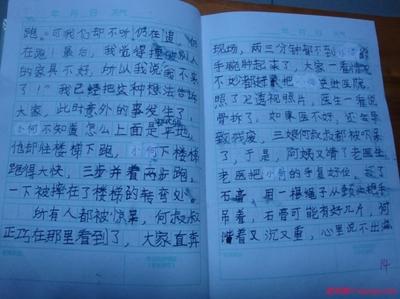 年 月 日 天气
跑。可我们却不听，仍在追，仍
在跑！最后，我觉得撞坏别人
的家具不好，所以我说：不来
了！"我已经把这种想法告诉
大家，此时意外的事发生了，
小何不知道怎么上面是平地，
他却往楼梯下跑，小何下楼梯
跑得大快，三步并着两步跑，
一下被摔在了楼梯的转弯处。
所有人都被惊呆，何叔叔
正巧在那里看到了，大家直奔
年 月 日 天气
现场，两三分钟都不到，小何的
手腕肿起来了，大家一看情况
不妙都好
把小何
医院，
照了X透视照片，医生一看说
骨折了，如果医不好，还会导
致残废，三娘何叔叔都被吓呆
了，于是，阿姨又请了老医生，
老医把小何的手复好位，敷了
石膏，用一根绳子从颈处把手
吊着，石膏可能有好几斤，何
清着又沉又重，心里说不出滋
14